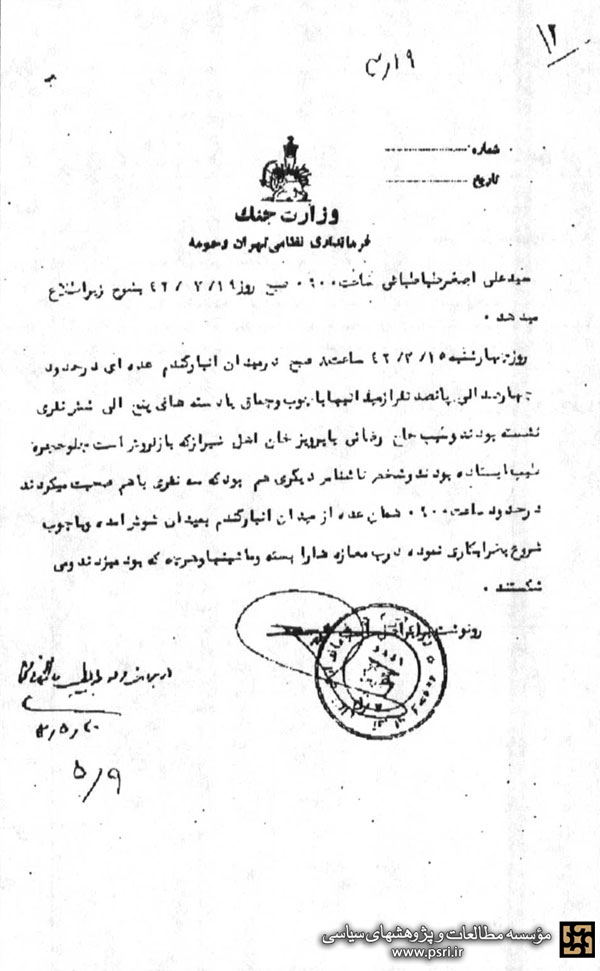 ۱۲
۱۹ر۳
شماره
تاریخ
وزارت جنگ
فرمانداری نظامی تهران وحومه
سیدعلی اصغرطباطبائی ساعت ۰۹۰۰ صبح روز ۴۲/۳/۱۹ بشرح زیراطلاع
میدهد .
روزچهارشنبه ۴۲/۳/۱۵ ساعت ۸ صبح درمیدان انبارگندم عده ای درحدود
چهارصدالی پانصدنفرازمیدانیهاباچوب وچماق بادسته های پنج الی شش نفری
نشسته بودندوطیب حاج رضائی باپرویزخان اهل شیرازکه بارفروش است جلوحجره
طیب ایستاده بودندوشخص ناشناس دیگری هم بودکه سه نفری باهم صحبت میکردند
درحدود ساعت ۰۹۰۰ همان عده ازمیدان انبارگندم بمیدان شوش آمده وباچوب
شروع بخرابکاری نموده درب مغازه هارا بسته وماشینهاوهرچه که بود میزدندومی
شکستند .
رونوشت برابراصل است
۵/۹
مؤسسه مطالعات و پژوهشهای سیاسی
www.psri.ir